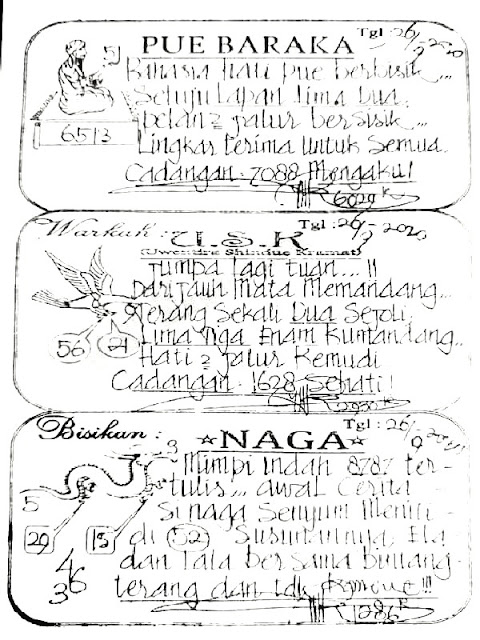 PUE BARAKA
Tgl : 26/2-2020
Bahasia hati pue berbisik...
Setuju Lapan lima Dua,
pelan2 jalur bersisik...
6513
Lingkar terima untuk Semua.
Cadangan. 7088 Mengaku!
6029 K
Warkah :
U.S.K
Tgl : 26/2-2020
(Uwentira Shindue Kramat)
Jumpa lagi tuan...!!
Dari jauh Mata Memandang...
Terang Sekali Dua Sejoli
56 21
Lima Tiga Enam Kumandang..
Hati2 jalur Kemudi
Cadangan. 1628 Sehati!
Bisikan :
NAGA
Tgl : 26/2-2020
3
Mimpi indah 8787 ter-
tulis... awal Cerita
5
Si naga Senyum Meniti
29 15
di 52 Susunannya, Ela
46
dan Lala bersama buang-
3
terang dan
1286 K